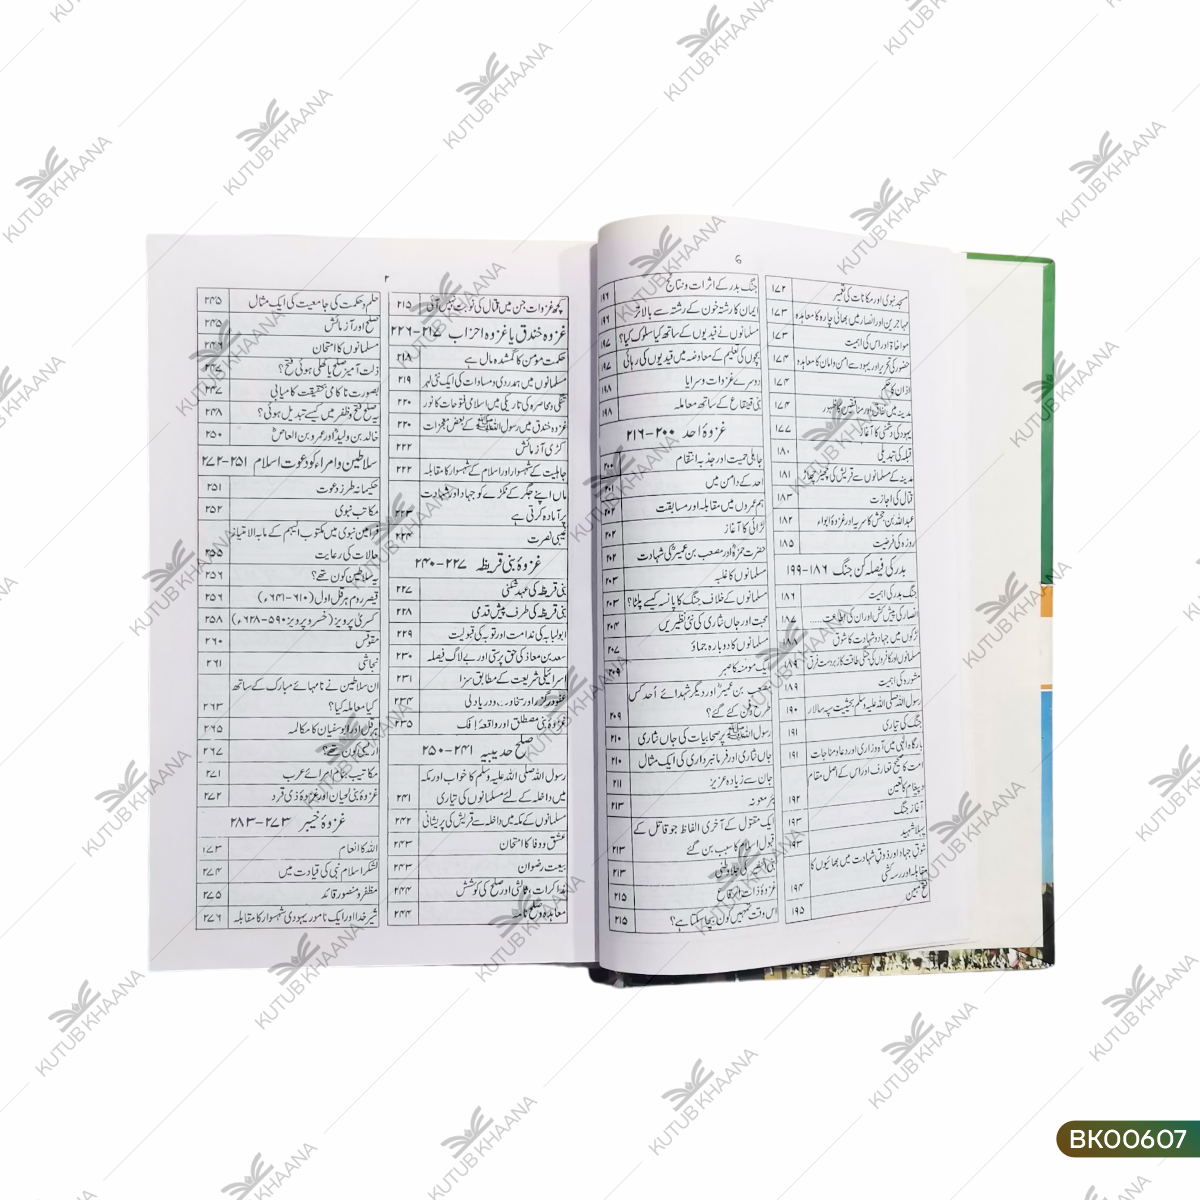 ۱۷۲ مسجد نبوی اور مکانات کی تعمیر
۱۷۳ مہاجرین اور انصار میں بھائی چارہ کا معاہدہ
۱۷۳ مواخاۃ اور اس کی اہمیت
۱۷۴ حضور کی تحریر اور یہود سے امن و امان کا معاہدہ
۱۷۴ اذان کا حکم
۱۷۴ مدینہ میں نفاق اور منافقین کا ظہور
۱۷۷ یہود کی دشمنی کا آغاز
۱۸۰ قبلہ کی تبدیلی
۱۸۱ مدینہ کے مسلمانوں سے قریش کی چھیڑ چھاڑ
۱۸۳ قتال کی اجازت
۱۸۲ عبداللہ بن جحش کا سریہ اور غزوۂ ابواء
۱۸۵ روزہ کی فرضیت
بدر کی فیصلہ کن جنگ ۱۸۶-۱۹۹
۱۸۶ جنگ بدر کی اہمیت
۱۸۷ انصار کی پیش کش اور ان کی اطاعت ......
۱۸۸ لڑکوں میں جہاد و شہادت کا شوق
۱۸۹ مسلمانوں اور کافروں کی جنگی طاقت کا زبردست فرق
۱۸۹ مشورہ کی اہمیت
۱۹۰ رسول اللہ صلی اللہ علیہ وسلم بحیثیت سپہ سالار
۱۹۱ جنگ کی تیاری
۱۹۱ بارگاہ الٰہی میں آہ و زاری اور دعا و مناجات
امت کا صحیح تعارف اور اس کے اصل مقام
۱۹۲ و پیغام کا تعین
۱۹۳ آغاز جنگ
۱۹۳ پہلا شہید
شوق جہاد اور ذوق شہادت میں بھائیوں کا
۱۹۴ مقابلہ اور رسہ کشی
۱۹۵ فتح مبین
۱۹۶ جنگ بدر کے اثرات و نتائج
۱۹۶ ایمان کا رشتہ خون کے رشتہ سے بالاتر
۱۹۷ مسلمانوں نے قیدیوں کے ساتھ کیا سلوک کیا؟
۱۹۷ بچوں کی تعلیم کے معاوضہ میں قیدیوں کی رہائی
۱۹۸ دوسرے غزوات و سرایا
۱۹۸ بنی قینقاع کے ساتھ معاملہ
غزوۂ احد ۲۰۰-۲۱۶
۲۰۰ جاہلی حمیت اور جذبہ انتقام
۲۰۱ احد کے دامن میں
۲۰۲ ہم عمروں میں مقابلہ اور مسابقت
۲۰۲ لڑائی کا آغاز
۲۰۲ حضرت حمزہؓ اور مصعب بن عمیرؓ کی شہادت
۲۰۳ مسلمانوں کا غلبہ
۲۰۳ مسلمانوں کے خلاف جنگ کا پانسہ کیسے پلٹا؟
۲۰۴ محبت اور جاں نثاری کی نئی نظیریں
۲۰۷ مسلمانوں کا دوبارہ جماؤ
۲۰۹ ایک مومنہ کا صبر
مصعب بن عمیرؓ اور دیگر شہدائے اُحد کس
۲۰۹ طرح دفن کئے گئے؟
۲۱۰ رسول اللہ ﷺ پر صحابیات کی جاں نثاری
۲۱۰ جاں نثاری اور فرمانبرداری کی ایک مثال
۲۱۱ جان سے زیادہ عزیز
۲۱۳ بئر معونہ
ایک مقتول کے آخری الفاظ جو قاتل کے
۲۱۳ قبول اسلام کا سبب بن گئے
۲۱۳ بنی النضیر کی جلاوطنی
۲۱۵ غزوۂ ذات الرقاع
۲۱۵ اس وقت تمہیں کون بچا سکتا ہے؟
۲
۲۱۵ کچھ غزوات جن میں قتال کی نوبت نہیں آئی
غزوہ خندق یا غزوہ احزاب ۲۱۷-۲۲۶
۲۱۸ حکمت مومن کا گمشدہ مال ہے
۲۱۹ مسلمانوں میں ہمدردی و مساوات کی ایک نئی لہر
۲۲۰ تنگی و محاصرہ کی تاریکی میں اسلامی فتوحات کا نور
۲۲۰ غزوہ خندق میں رسول اللہ ﷺ کے بعض معجزات
۲۲۲ کڑی آزمائش
۲۲۲ جاہلیت کے شہسوار اور اسلام کے شہسوار کا مقابلہ
ماں اپنے جگر کے ٹکڑے کو جہاد اور شہادت
۲۲۳ پر آمادہ کرتی ہے
۲۲۴ غیبی نصرت
غزوۂ بنی قریظہ ۲۲۷-۲۴۰
۲۲۷ بنی قریظہ کی عہد شکنی
۲۲۸ بنی قریظہ کی طرف پیش قدمی
۲۲۹ ابولبابہ کی ندامت اور توبہ کی قبولیت
۲۳۰ سعد بن معاذ کی حق پرستی اور بے لاگ فیصلہ
۲۳۱ اسرائیلی شریعت کے مطابق سزا
۲۳۴ عفو و درگزر اور سخاوت و دریا دلی
۲۳۵ غزوۂ بنی مصطلق اور واقعہ افک
صلح حدیبیہ ۲۴۱-۲۵۰
رسول اللہ صلی اللہ علیہ وسلم کا خواب اور مکہ
۲۴۱ میں داخلہ کے لئے مسلمانوں کی تیاری
۲۴۲ مسلمانوں کے مکہ میں داخلہ سے قریش کی پریشانی
۲۴۳ عشق و وفا کا امتحان
۲۴۳ بیعت رضوان
۲۴۴ مذاکرات، ثالثی اور صلح کی کوشش
۲۴۴ معاہدہ و صلح نامہ
۲۴۵ حلم و حکمت کی جامعیت کی ایک مثال
۲۴۵ صلح اور آزمائش
۲۴۶ مسلمانوں کا امتحان
۲۴۷ ذلت آمیز صلح یا کھلی ہوئی فتح؟
۲۴۷ بصورت ناکامی حقیقت کامیابی
۲۴۸ یہ صلح فتح و ظفر میں کیسے تبدیل ہوئی؟
۲۵۰ خالد بن ولیدؓ اور عمرو بن العاصؓ
سلاطین و امراء کو دعوت اسلام ۲۵۱-۲۷۲
۲۵۱ حکیمانہ طرز دعوت
۲۵۲ مکاتب نبوی
فرامین نبوی میں مکتوب الیہم کے مابہ الامتیاز
۲۵۵ حالات کی رعایت
۲۵۶ یہ سلاطین کون تھے؟
۲۵۶ قیصر روم ہرقل اول (۶۱۰-۶۴۱ء)
۲۵۸ کسریٰ پرویز (خسرو پرویز ۵۹۰-۶۲۸ء)
۲۶۰ مقوقس
۲۶۱ نجاشی
ان سلاطین نے نامہائے مبارک کے ساتھ
۲۶۳ کیا معاملہ کیا؟
۲۶۵ ہرقل اور ابوسفیان کا مکالمہ
۲۶۷ اریسی کون تھے؟
۲۷۱ مکاتیب بنام امرائے عرب
۲۷۲ غزوۂ بنی لحیان اور غزوۂ ذی قرد
غزوۂ خیبر ۲۷۳-۲۸۳
۱۷۳ اللہ کا انعام
۲۷۴ لشکر اسلام نبی کی قیادت میں
۲۷۵ مظفر و منصور قائد
۲۷۶ شیر خدا اور ایک نامور یہودی شہسوار کا مقابلہ
KUTUB KHAANA
BK00607